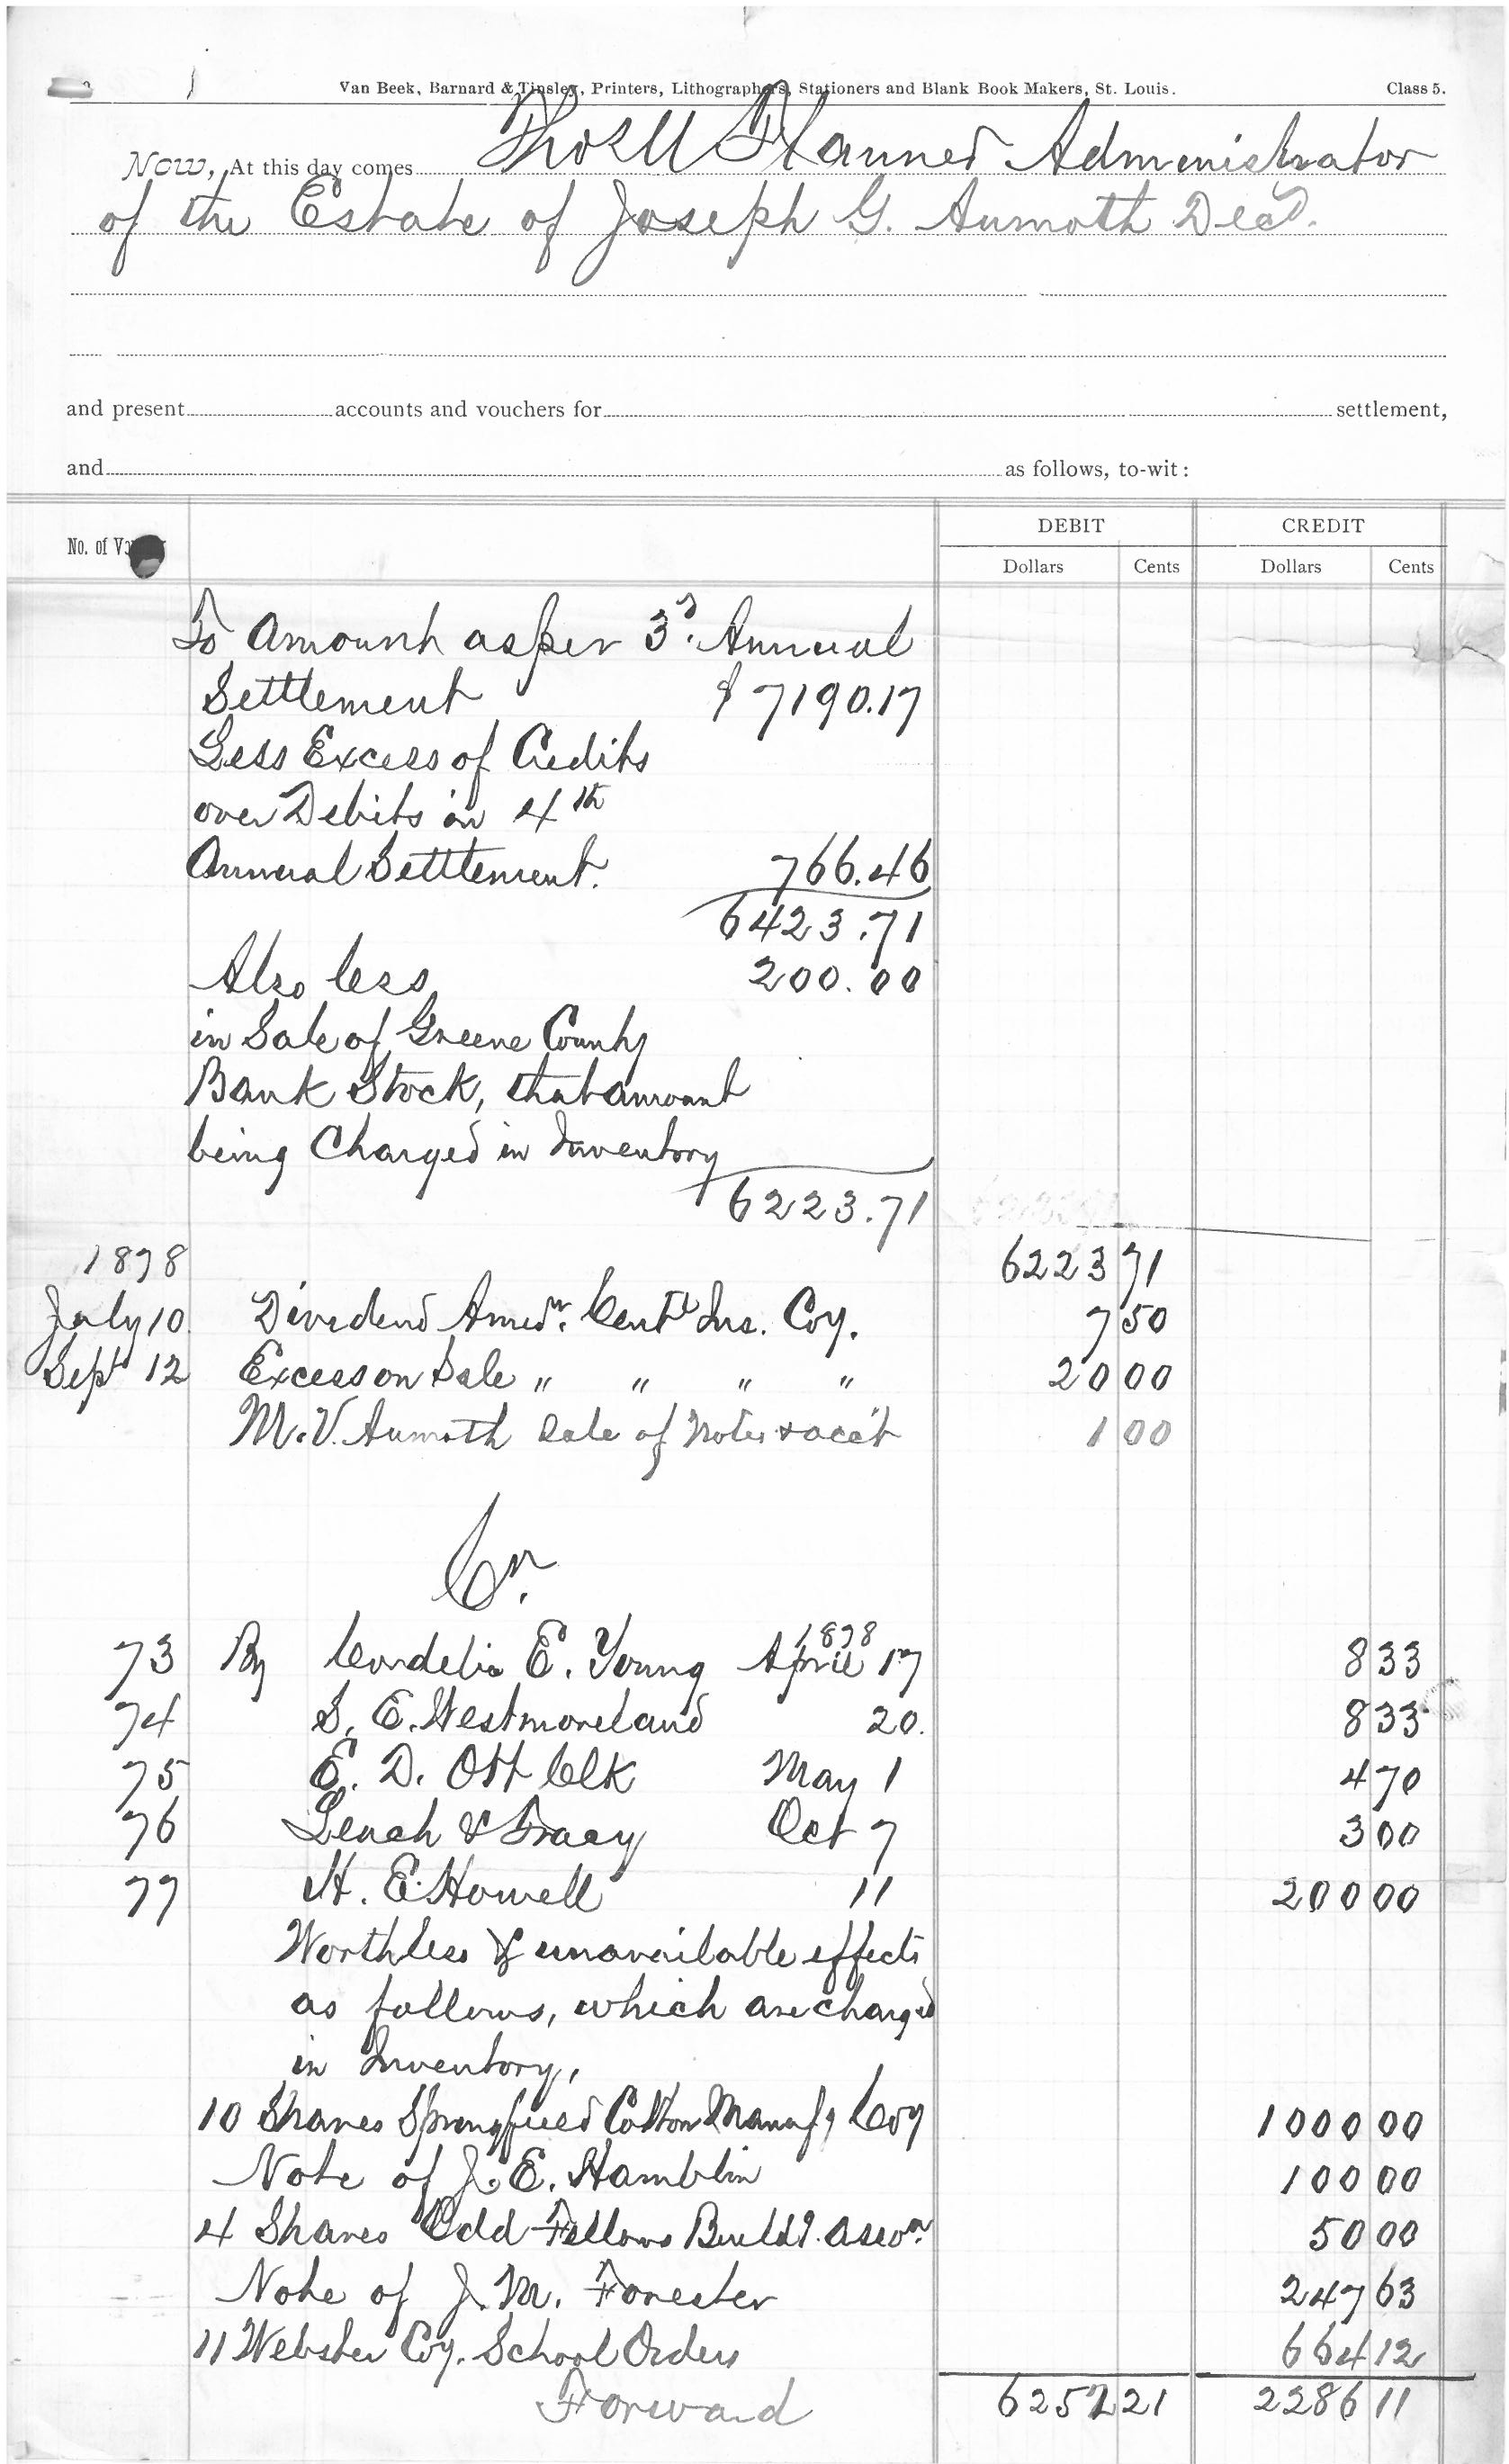 Van Beek, Barnard & Tinsley, Printers, Lithographers, Stationers and Blank Book Makers, St. Louis. Class 5.
Now, At this day comes Thos U Flanner Administrator
of the Estate of Joseph G. Aumoth Decd.
and present accounts and vouchers for settlement,
and as follows, to-wit:
No. of DEBIT CREDIT
Dollars Cents Dollars Cents
To Amount as per 3d. Annual
Settlement $7190.17
Less Excess of Credits
over Debits in 4th
Annual Settlement. 766.46
6423.71
Also less 200.00
in Sale of Greene County
Bank Stock, that amount
being Charged in Inventory
6223.71
1898 6223 71
July 10 Dividend Amedn. Centl Ins. Coy. 7 50
Sept 12 Excess on Sale " " " " 20 00
M. V. Aumoth Sale of Notes & acct 1 00
Cr.
1898
73 By Cordelia E. Young April 17 8 33
74 S. E. Westmoreland 20. 8 33
75 E. D. Ott Clk May 1 4 70
76 Leach & Tracy Oct 7 3 00
77 H. E. Howell 11 200 00
Worthless & unavailable effects
as follows, which are charged
in Inventory,
10 Shares Springfield Cotton Manafg Coy 1000 00
Note of J. E. Hamblin 100 00
4 Shares Odd Fellows Buildg. asson. 50 00
Note of J. M. Forester 247 63
11 Webster Coy. School Orders 664 12
Forward 6252 21 2286 11